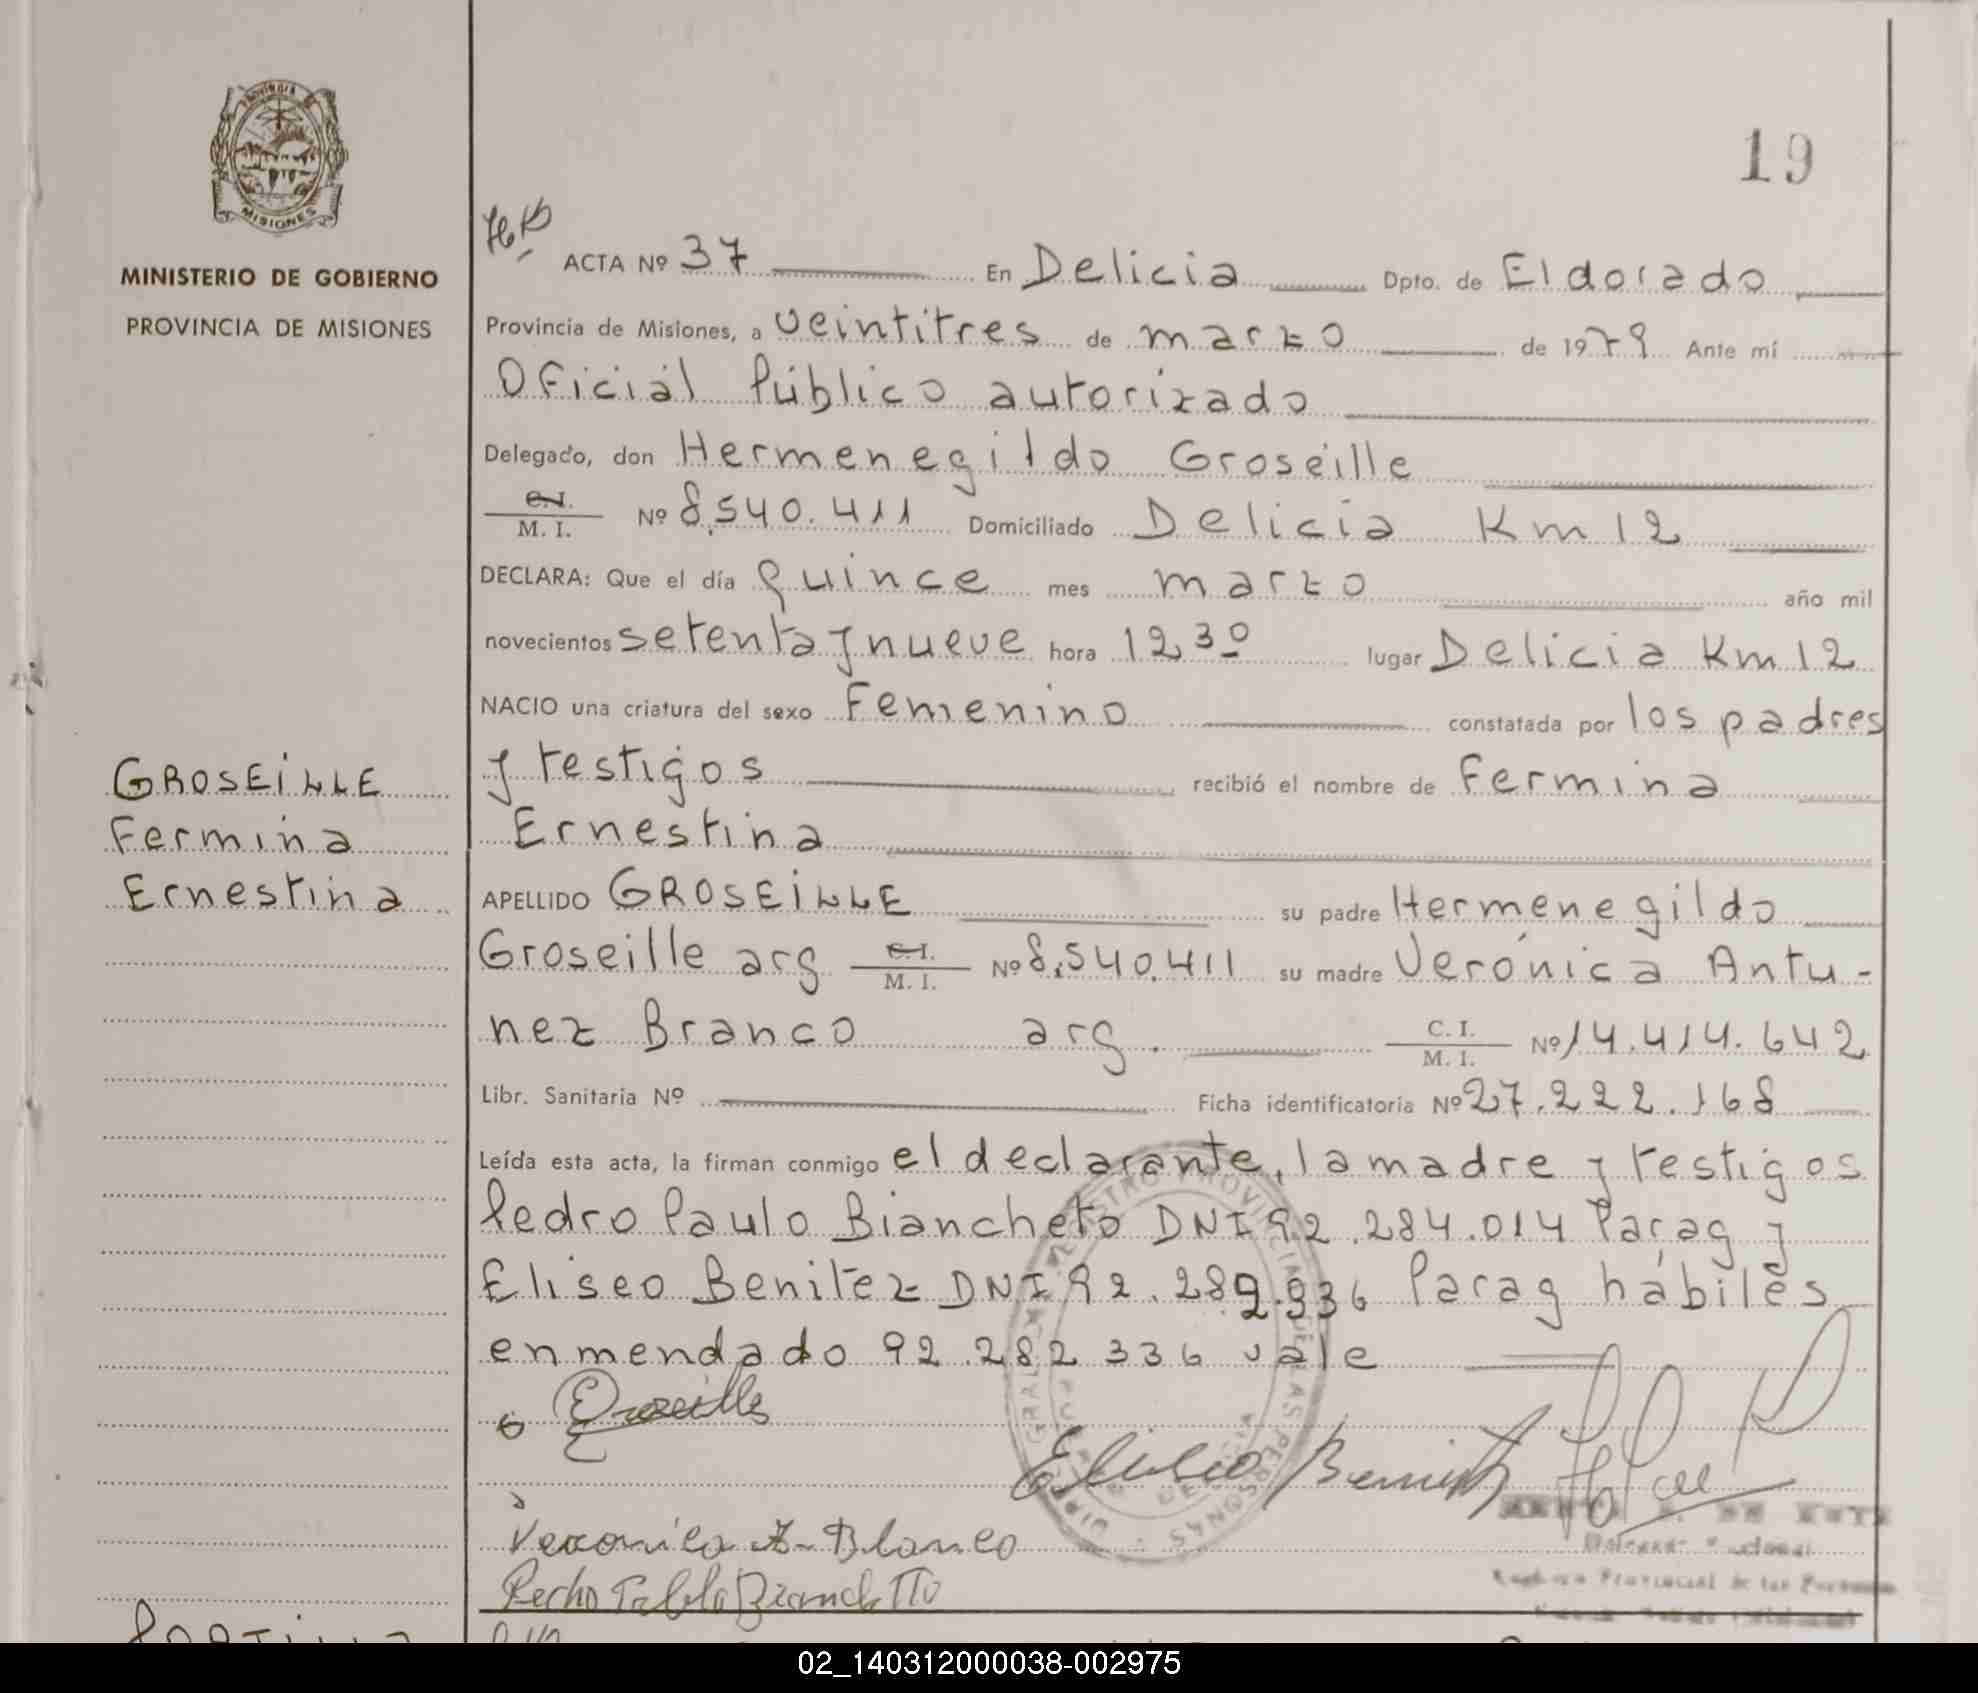 19
PROVINCIA DE
MISIONES
MINISTERIO DE GOBIERNO
PROVINCIA DE MISIONES
ACTA Nº 37 En Delicia Dpto. de Eldorado
Provincia de Misiones, a veintitres de marzo de 1979 Ante mí
Oficial Público autorizado
Delegado, don Hermenegildo Groseille
C.I.
M. I. Nº 8.540.411 Domiciliado Delicia Km 12
DECLARA: Que el día quince mes marzo año mil
novecientos setenta y nueve hora 12,30 lugar Delicia Km 12
NACIO una criatura del sexo Femenino constatada por los padres
y testigos recibió el nombre de Fermina
Ernestina
GROSEILLE
Fermina
Ernestina
APELLIDO GROSEILLE su padre Hermenegildo
Groseille arg C.I. M. I. Nº 8.540.411 su madre Verónica Antu-
nez Branco arg. C. I. M. I. Nº 14.414.642
Libr. Sanitaria Nº Ficha identificatoria Nº 27.222.168
Leída esta acta, la firman conmigo el declarante, la madre y testigos
Pedro Paulo Biancheto DNI 92.284.014 Parag y
Eliseo Benitez DNI 92.282.336 Parag hábiles
enmendado 92.282 336 vale
Groseille
Eliseo Benitez
Veronica A- Blanco
Pedro Pablo Bianchetto
02_140312000038-002975